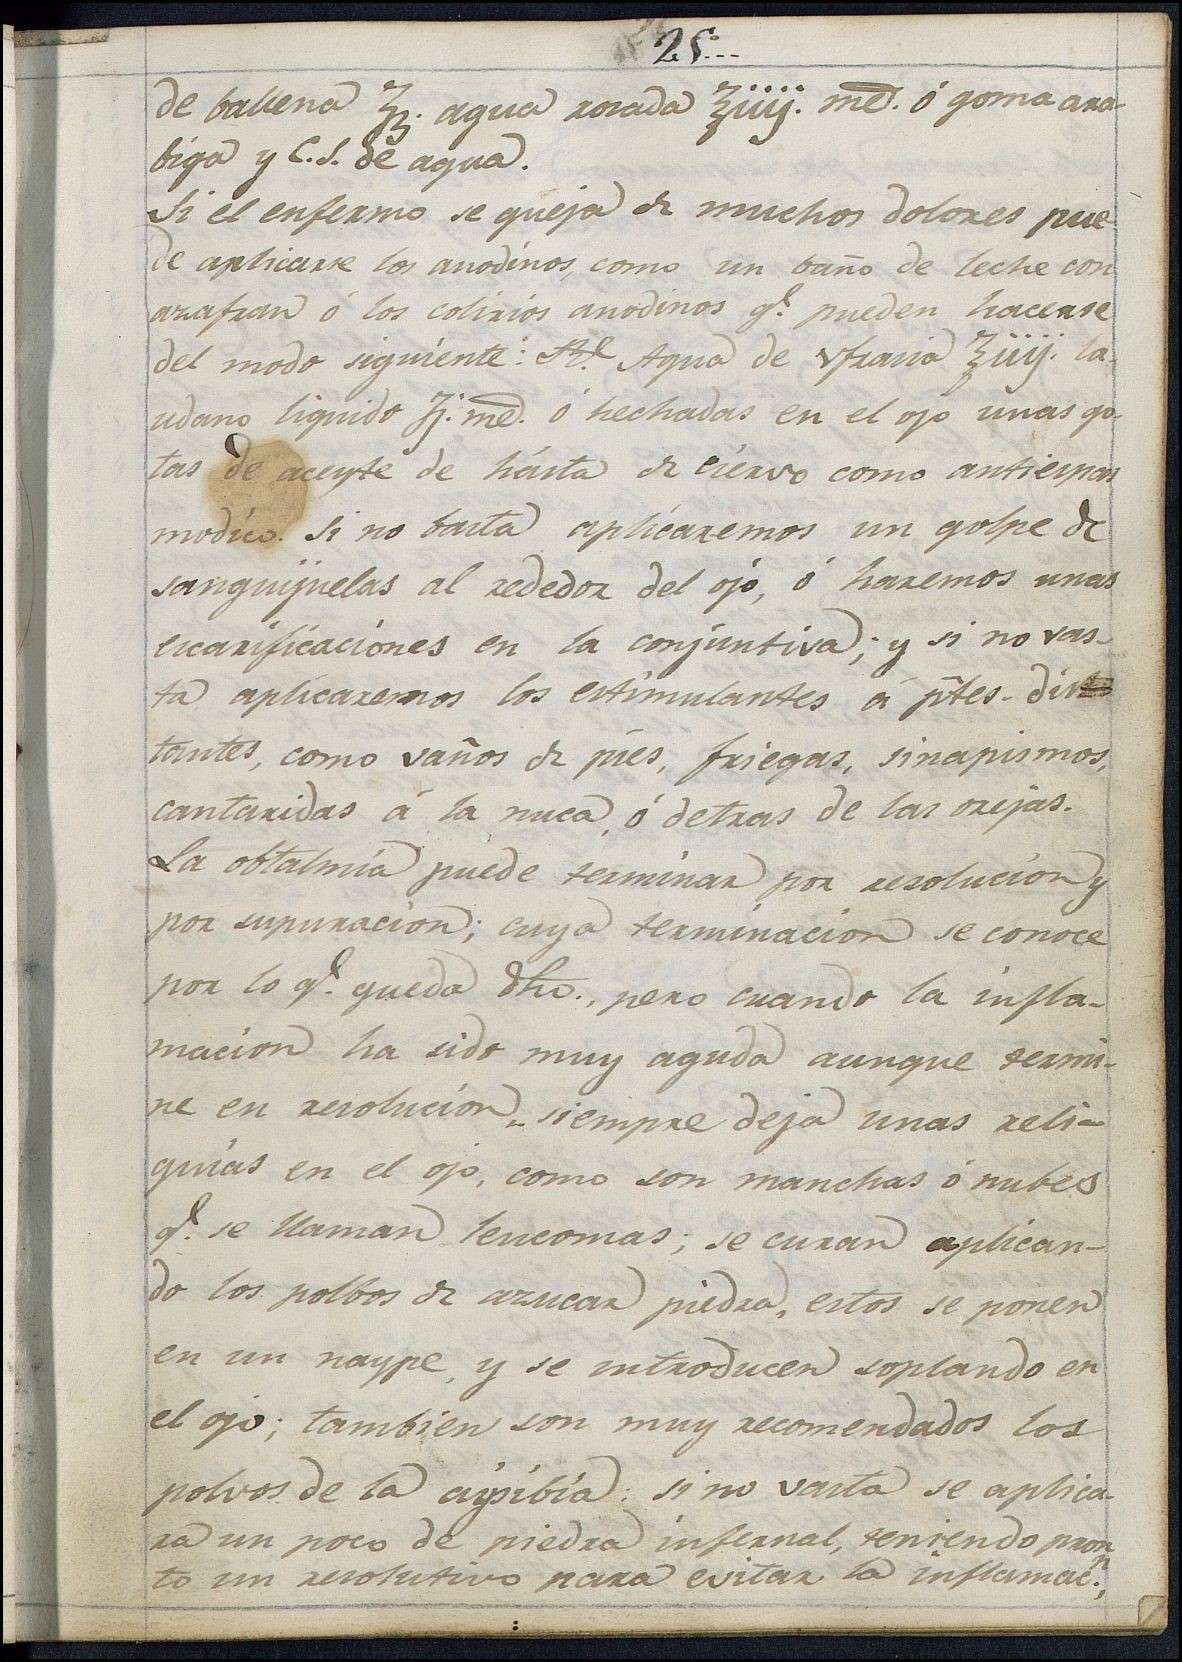 25...
de ballena ʒß. agua rosada ℥iiij. md. ó goma ara-
biga y C.S. de agua.
Si el enfermo se queja de muchos dolores pue-
de aplicarse los anodinos, como un baño de leche con
azafran ó los colirios anodinos q.e pueden hacerse
del modo siguiente: R.e Agua de ufrasia ℥iiij. la-
udano liquido ʒj. md. ó hechadas en el ojo unas go-
tas de aceyte de hásta de ciervo como antiespas
modico. Si no basta aplicaremos un golpe de
sanguijuelas al rededor del ojo, ó haremos unas
escarificaciones en la conjuntiva; y si no vas-
ta aplicaremos los estimulantes á p̃tes. dis
tantes, como vaños de pies, friegas, sinapismos,
cantaridas á la nuca, ó detras de las orejas.
La obtalmia puede terminar por resolucion y
por supuracion; cuya terminacion se conoce
por lo q.e queda dho., pero cuando la infla-
macion ha sido muy aguda aunque termi-
ne en resolucion, siempre deja unas reli-
quias en el ojo, como son manchas ó nubes
q.e se llaman leucomas; se curan aplican-
do los polbos de azucar piedra, estos se ponen
en un naype, y se introducen soplando en
el ojo; tambien son muy recomendados los
polvos de la si no vasta se aplica-
ra un poco de piedra infernal, teniendo pron
to un resolutivo para evitar la inflamac.n,